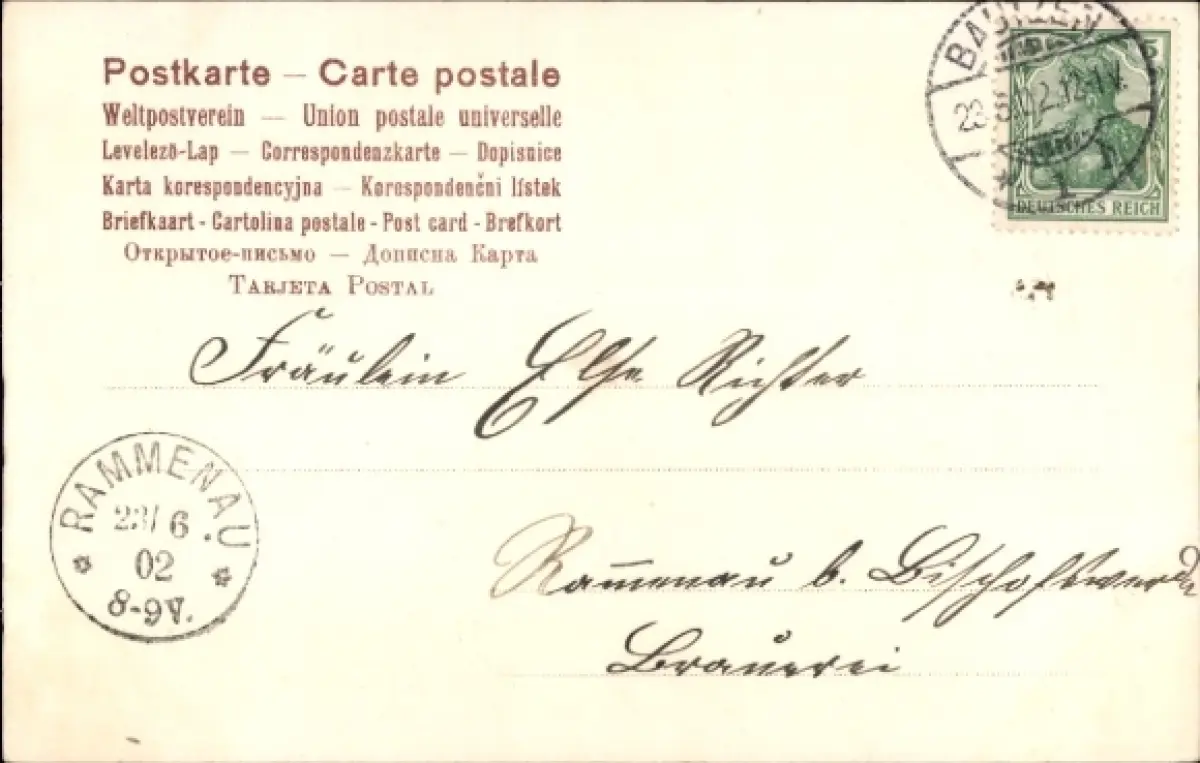 Postkarte – Carte postale
Weltpostverein — Union postale universelle
Levelező-Lap — Correspondenzkarte — Dopisnice
Karta korespondencyjna — Korespondenční lístek
Briefkaart - Cartolina postale - Post card - Brefkort
Открытое-письмо — Дописна Карта
Tarjeta Postal
BAUTZEN
02.12-1V.
5
DEUTSCHES REICH
Fräulein Else Richter
RAMMENAU
23/6
02
8-9V.
Ram̅enau b. Bischofswerda
Brauerei